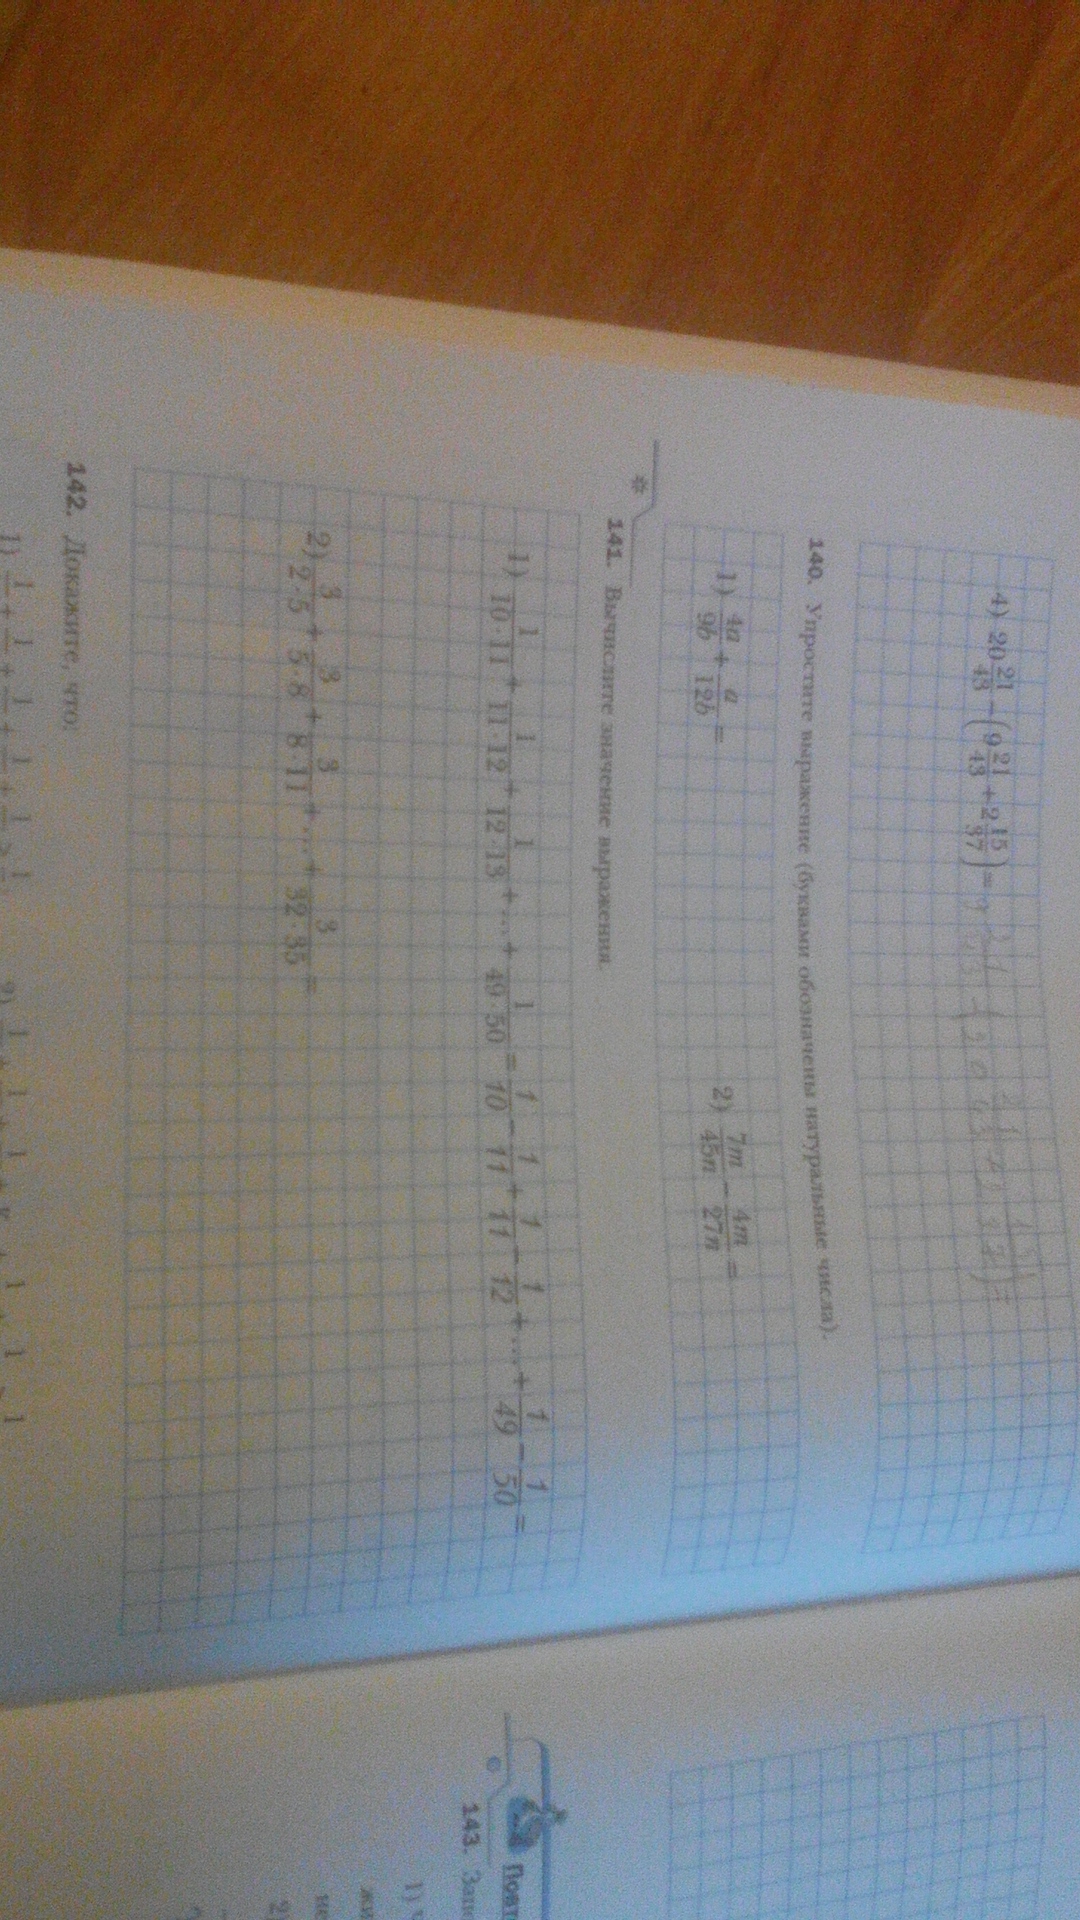 4) 20 21/43 − (9 21/43 + 2 15/37) =
140. Упростите выражение (буквами обозначены натуральные числа).
1) 4a/9b + a/12b = 2) 7m/45n − 4m/27n =
*
141. Вычислите значение выражения.
1) 1/(10·11) + 1/(11·12) + 1/(12·13) + ... + 1/(49·50) = 1/10 − 1/11 + 1/11 − 1/12 + ... + 1/49 − 1/50 =
2) 3/(2·5) + 3/(5·8) + 3/(8·11) + ... + 3/(32·35) =
142. Докажите, что:
1)
2)
143.
1)